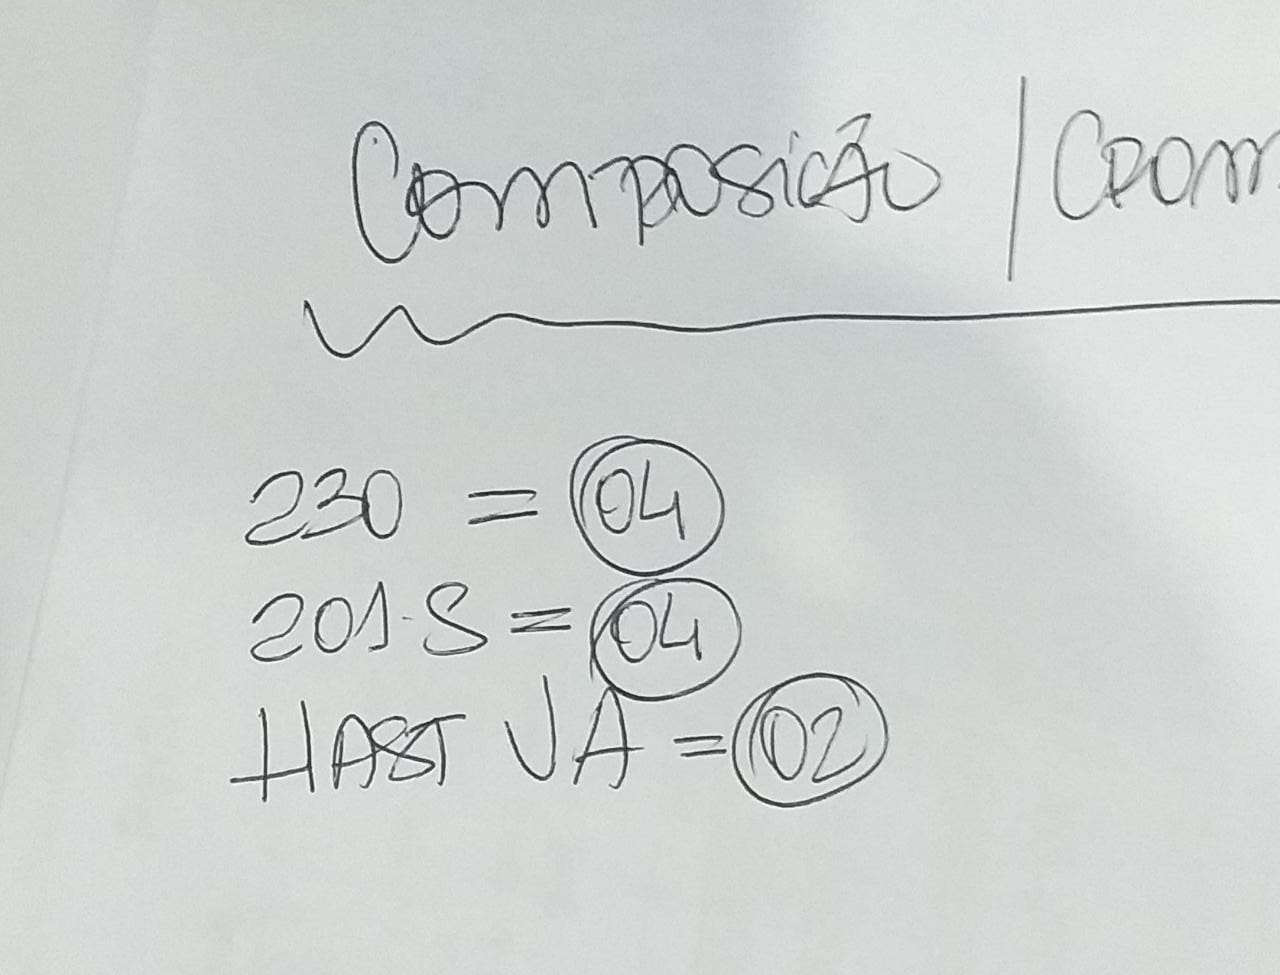 Composição | Crom
230 = 04
201-S = 04
HAST VA = 02